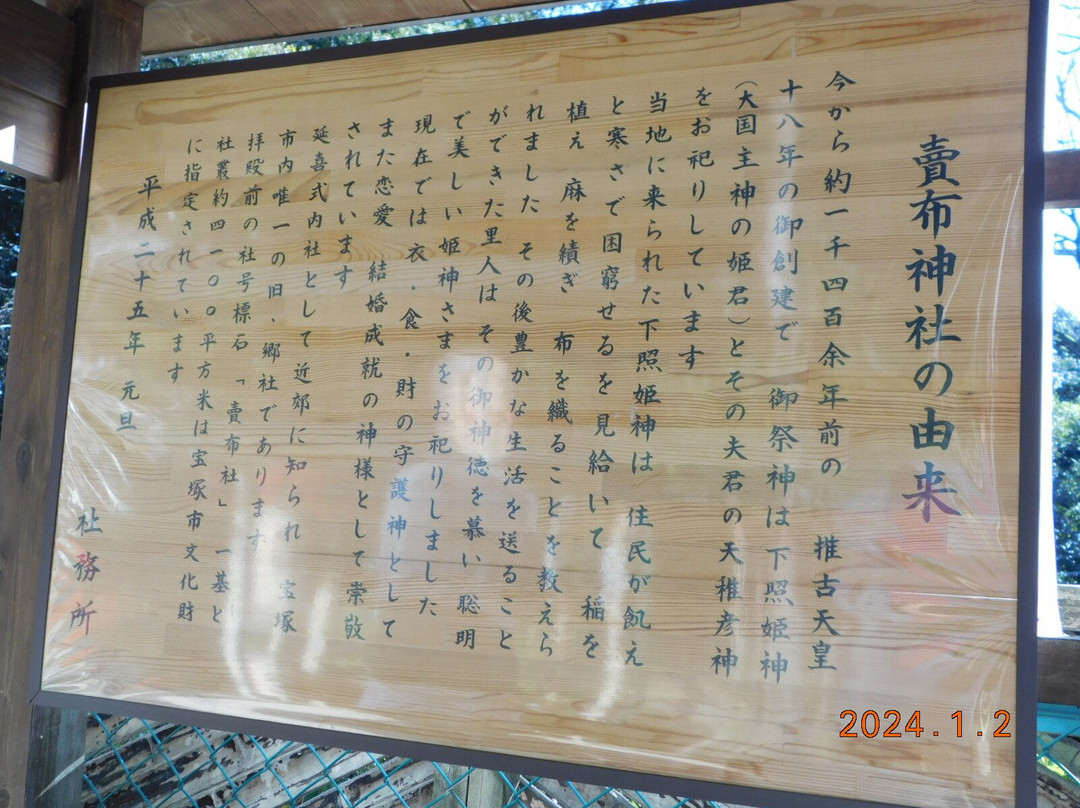 賣布神社の由来
今から約一千四百余年前の 推古天皇
十八年の御創建で 御祭神は 下照姫神
(大国主神の姫君)とその夫君の天稚彦神
をお祀りしています
当地に来られた下照姫神は 住民が飢え
と寒さで困窮せるを見給いて 稲を
植え 麻を績ぎ 布を織ることを教えら
れました その後豊かな生活を送ること
ができた里人は その御神徳を慕い 聡明
で美しい姫神さまをお祀りしました
現在では衣・食・財の守護神として
また恋愛 結婚成就の神様として崇敬
されています
延喜式内社として近郊に知られ 宝塚
市内唯一の旧、郷社であります
拝殿前の社号標石「賣布社」一基と
社叢約四一〇〇平方米は宝塚市文化財
に指定されています
平成二十五年 元旦
社務所
2024.1.2